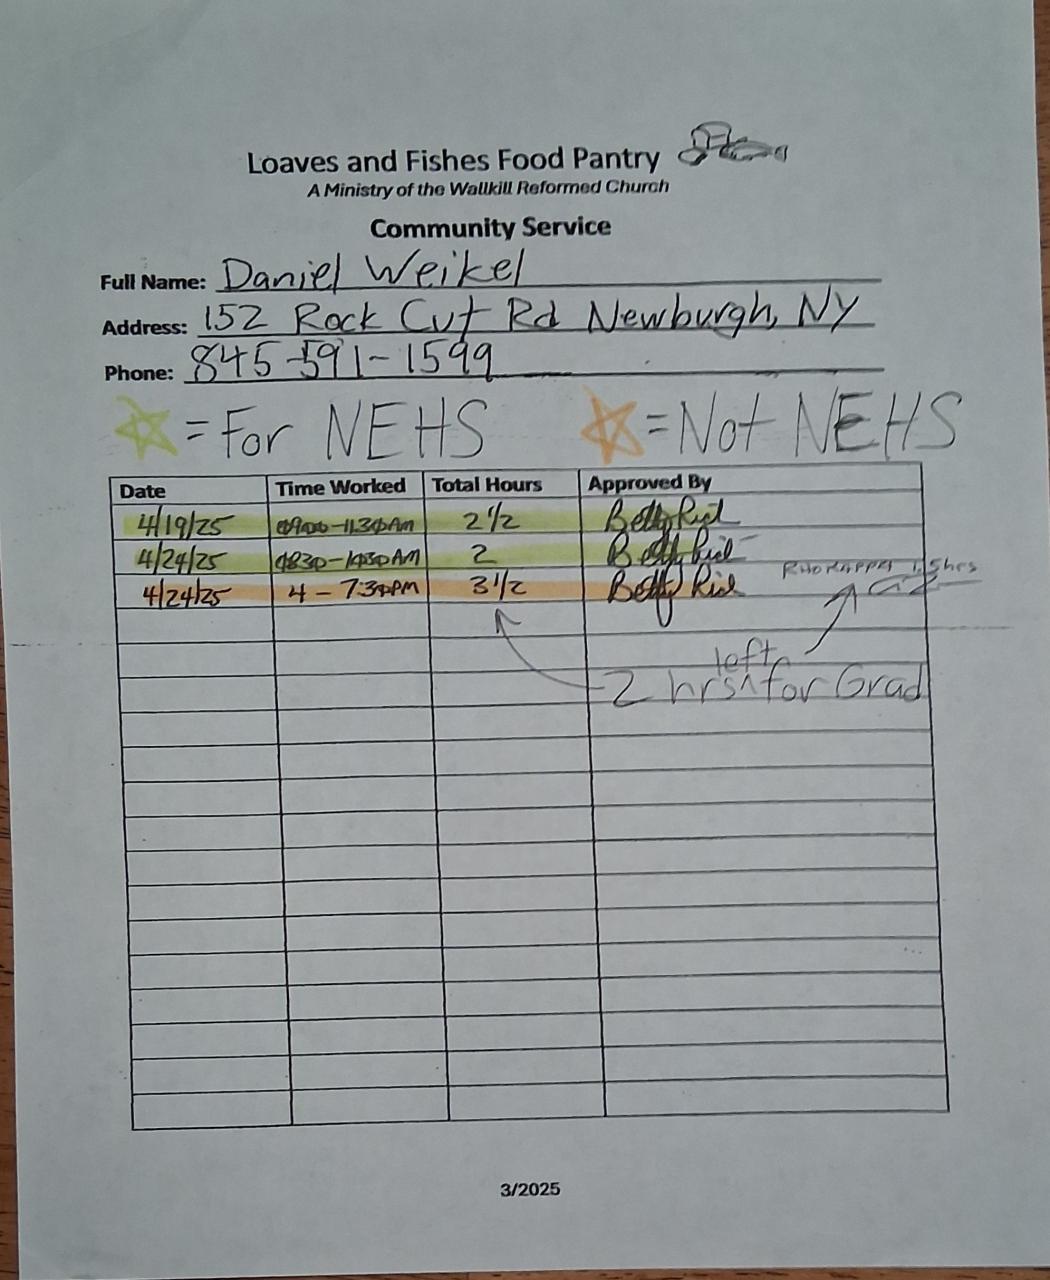 Loaves and Fishes Food Pantry
A Ministry of the Wallkill Reformed Church
Community Service
Full Name: Daniel Weikel
Address: 152 Rock Cut Rd Newburgh, NY
Phone: 845-591-1599
= For NEHS = Not NEHS
Date Time Worked Total Hours Approved By
4/19/25 0900-1130AM 2 1/2 Betty
4/24/25 0830-1030AM 2 Betty
4/24/25 4-7:30PM 3 1/2 Betty
1.5hrs
left
2 hrs ^ for Grad
3/2025